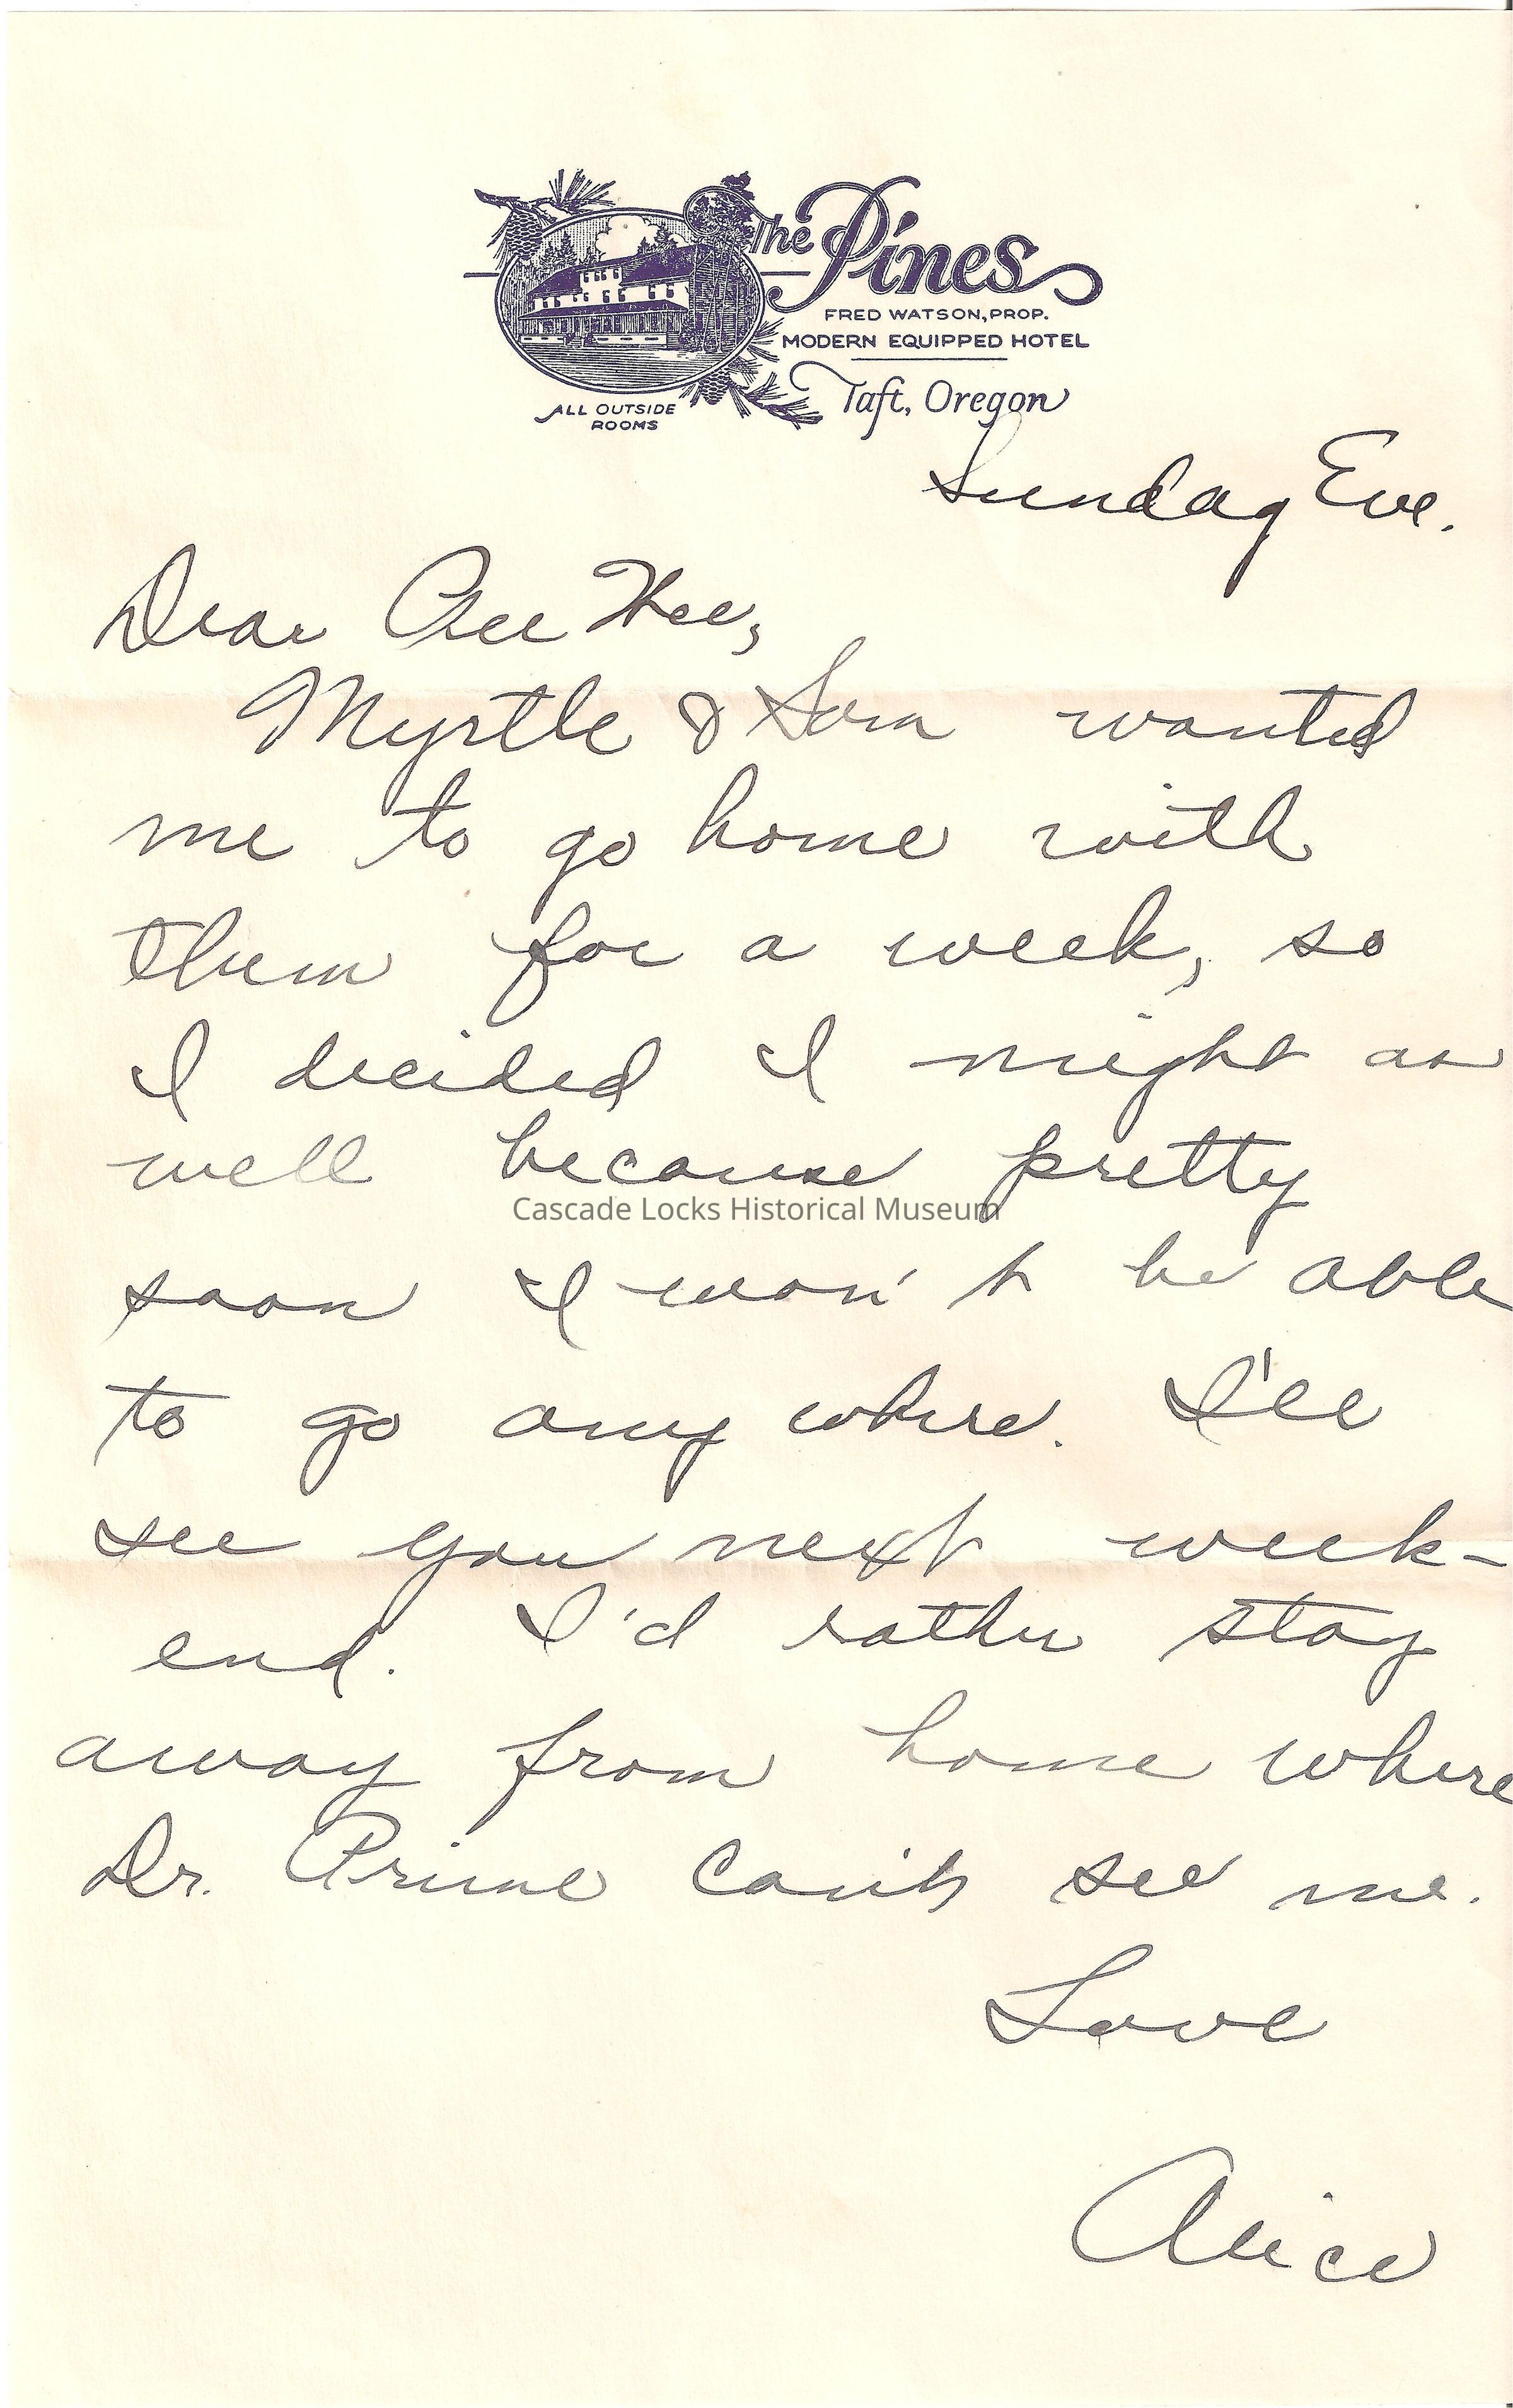 The Pines
FRED WATSON, PROP.
MODERN EQUIPPED HOTEL
Taft, Oregon
ALL OUTSIDE
ROOMS
Sunday Eve.
Dear Pee Wee,
Myrtle & Sam wanted
me to go home with
them for a week, so
I decided I might as
well because pretty
Cascade Locks Historical Museum
soon I won't be able
to go any where. I'll
see you next week-
end. I'd rather stay
away from home where
Dr. Prime can't see me.
Love
Alice